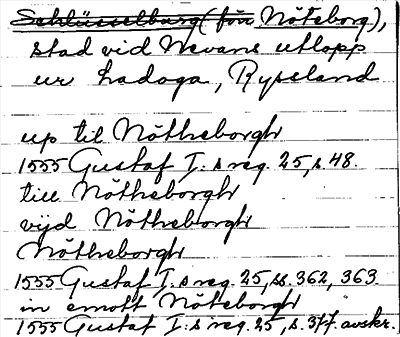 Schlüsselburg (för Nöteborg),
stad vid Nevans utlopp
ur Ladoga, Ryssland
up til Nötheborgh
1555 Gustaf I:s reg. 25, s. 48.
till Nötheborgh
vijd Nötheborgh
Nötheborgh
1555 Gustaf I:s reg. 25, ss. 362, 363.
in emott Nöteborgh
1555 Gustaf I:s reg. 25, s. 377. avskr.